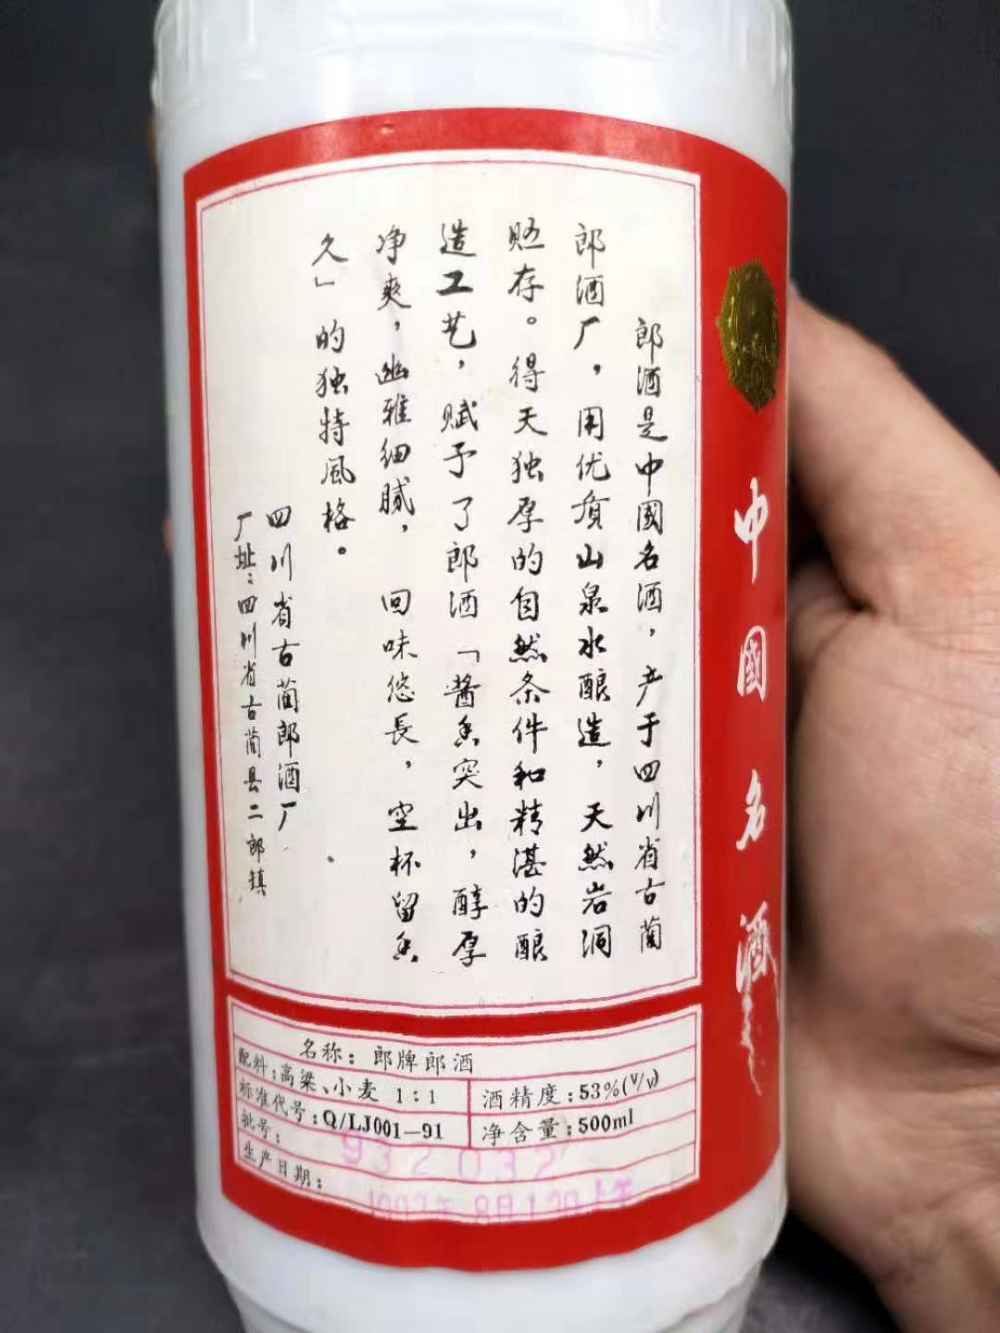 郎酒是中國名酒，产于四川省古蔺
郎酒厂，用优质山泉水酿造，天然岩洞
贮存。得天独厚的自然条件和精湛的酿
造工艺，赋予了郎酒「酱香突出，醇厚
净爽，幽雅细腻，回味悠長，空杯留香
久」的独特風格。
四川省古蔺郎酒厂
厂址：四川省古蔺县二郎镇
中國名酒
名称：郎牌郎酒
配料：高粱、小麦 1:1
酒精度：53%(V/V)
标准代号：Q/LJ001-91
净含量：500ml
批号：
932032
生产日期：